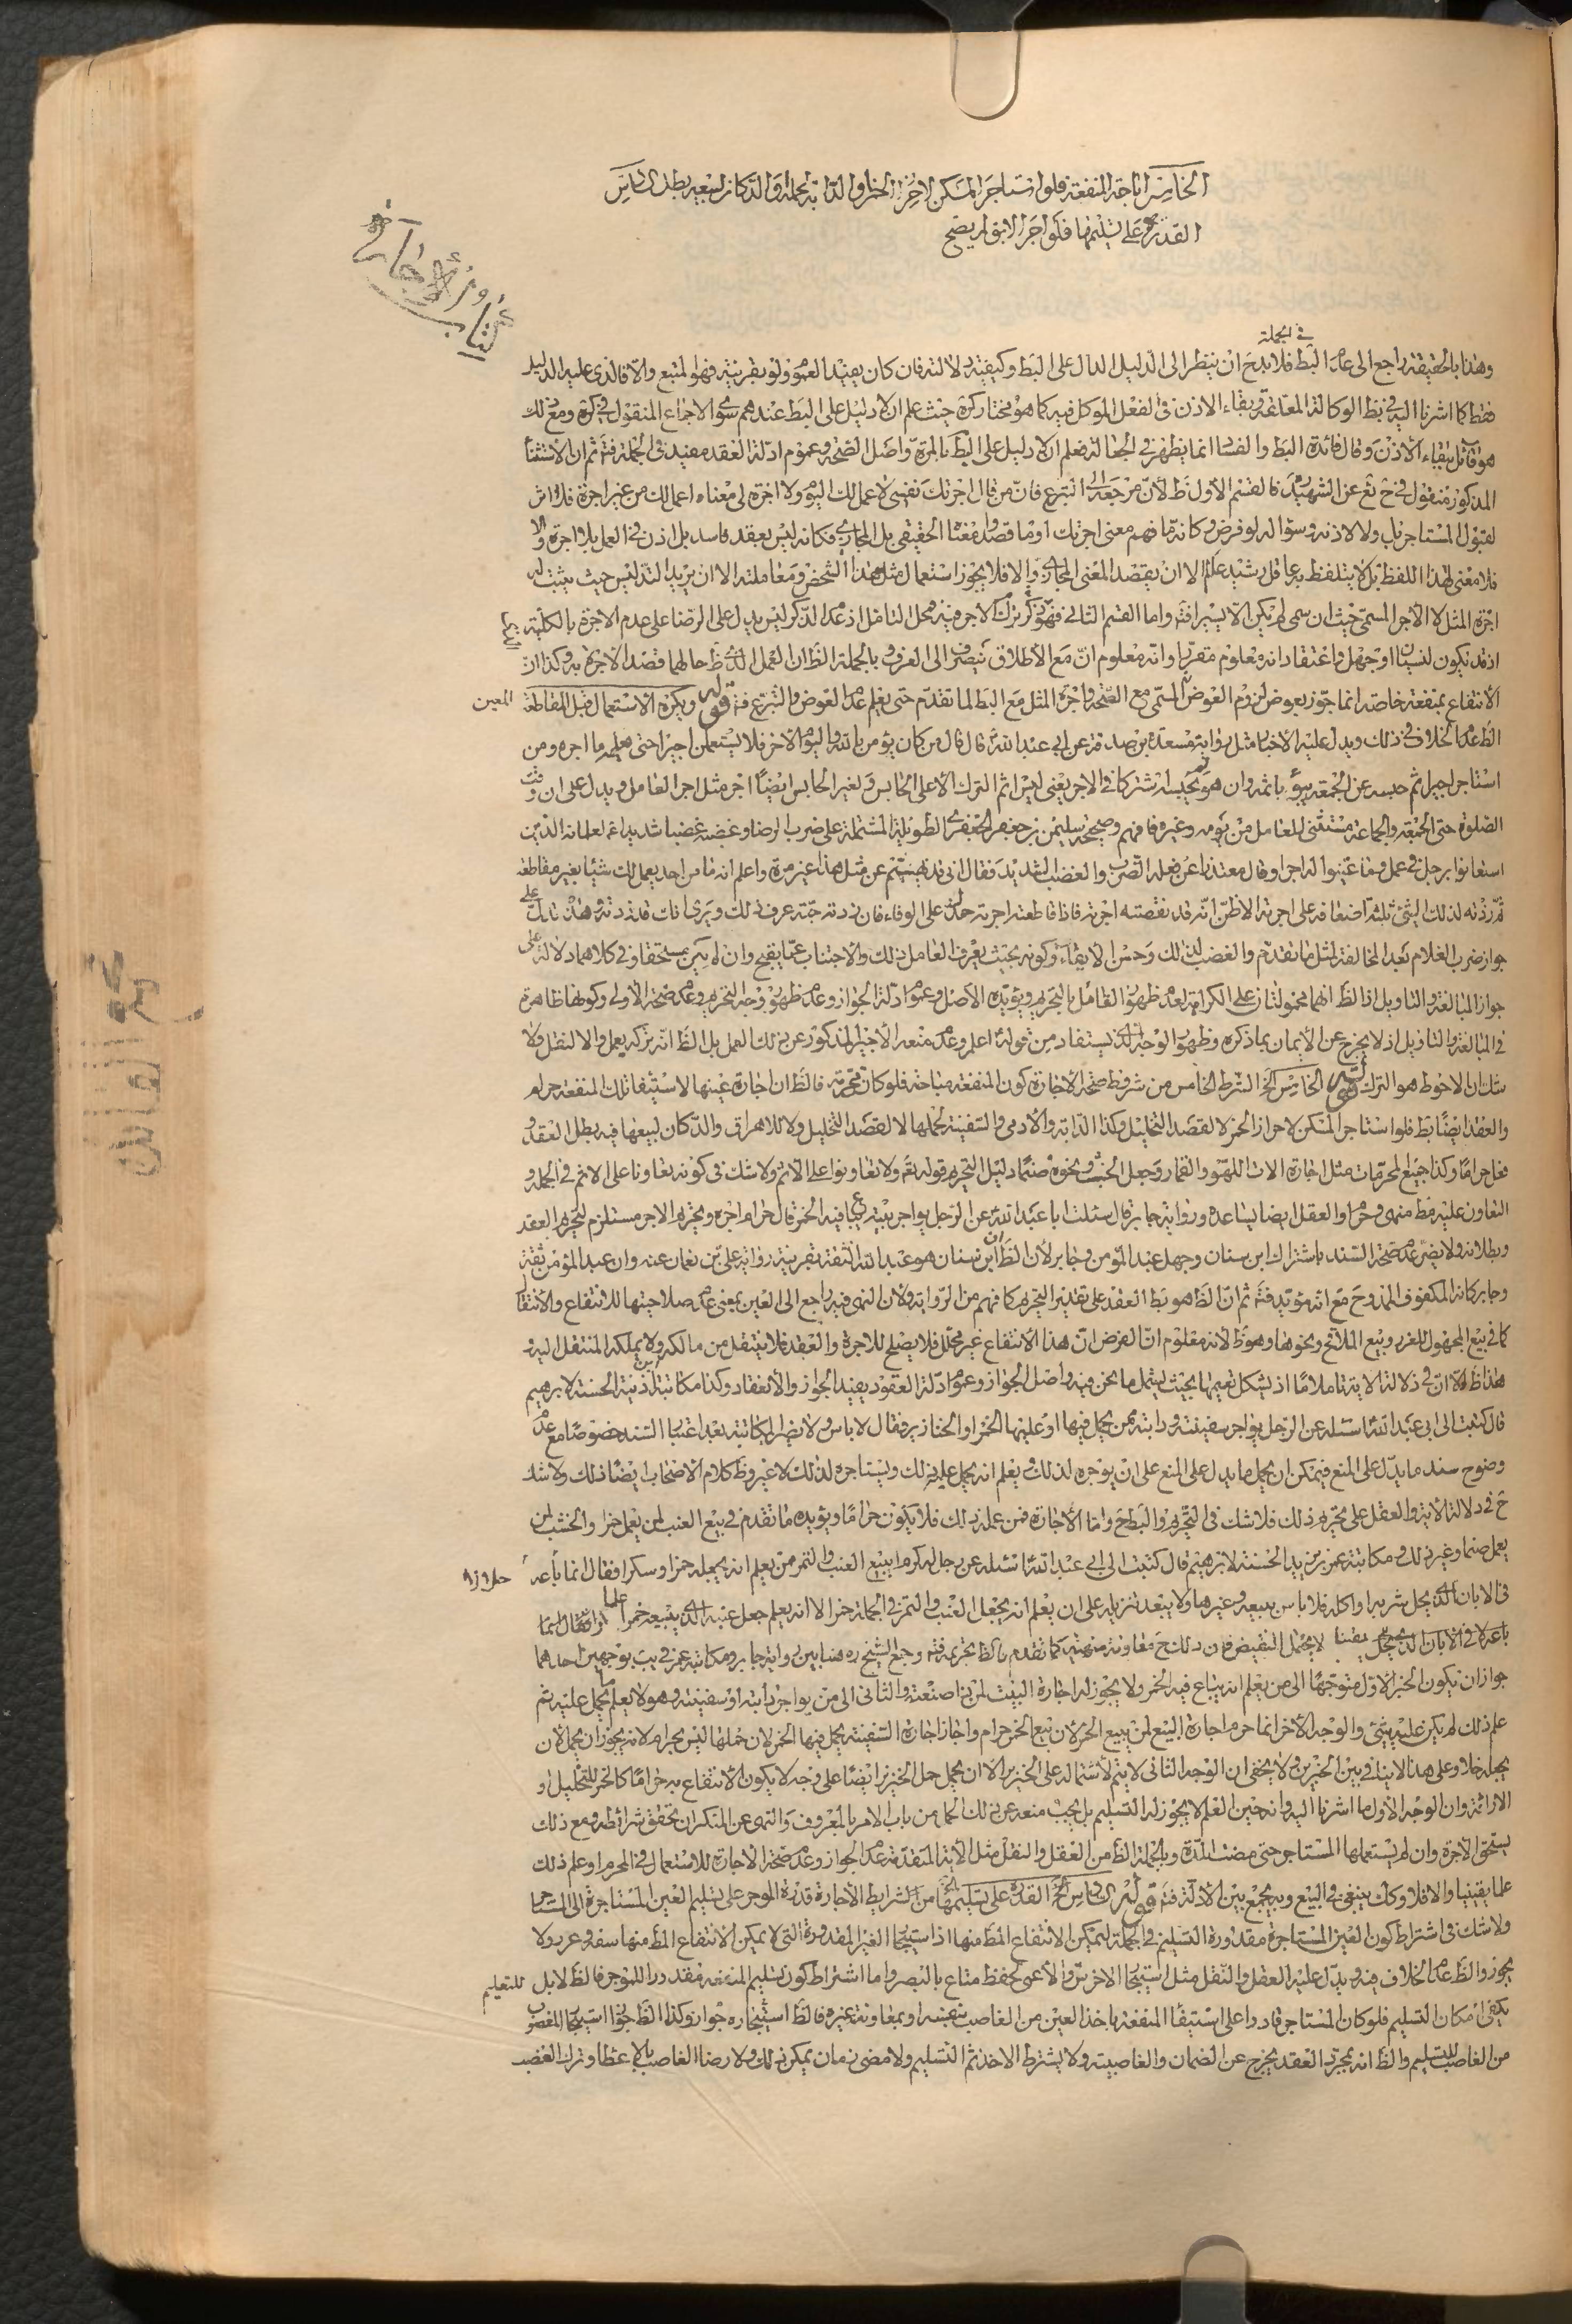 الخامس اباحة المنفعة فلو استاجر المسكن لاحراز الخمر او الدابة لحمله او الدكان لبيعه بطل السادس
القدرة على تسليمها فلو اجر الابق لم يصح
كتاب الاجارة
في الجملة
وهذا بالحقيقة راجع الى عدم البط فلا بد ح ان ينظر الى الدليل الدال على البط وكيفية دلالته فان كان يفيد العموم ولو بقرينة فهو المتبع والا فالذى عليه الدليل
فقط كما اشرنا اليه في بط الوكالة المعلقة وبقاء الاذن في الفعل الموكل فيه كما هو مختار كره حيث علم ان لا دليل على البط عندهم سوى الاجماع المنقول في كره ومع ذلك
هو قائل ببقاء الاذن وقال فائدة البط والفساد انما يظهر في الجعالة فعلم ان لا دليل على البط بالمرة واصل الصحة وعموم ادلة العقد مفيد في الجملة فتم ثم ان الاستثناء
المذكور منقول في ح ئع عن الشهيد فالقسم الاول ظ لان مرجعه الى التبرع فان من قال اجرتك نفسى لاعمل لك اليوم ولا اجرة لى معناه اعمل لك من غير اجرة فلا اثر
لقبول المستاجر بل ولا لاذنه وسؤاله لو فرض وكانه ما فهم معنى اجرتك او ما قصد معناه الحقيقى بل المجازى فكانه ليس بعقد فاسد بل اذن في العمل بلا اجرة والا
فلا معنى لهذا اللفظ بل لا يتلفظ به عاقل رشيد عالم الا ان يقصد المعنى المجازى والا فلا يجوز استعمال مثل هذا الشخص ومعاملته الا ان يريد التدليس حيث يثبت له
اجرة المثل لا الاجر المسمى حيث ان سمى لم يكن الا يسيرا فتم واما القسم الثانى فهو ذكر ترك الاجر ففيه محل التامل اذ عدم الذكر ليس يدل على الرضا على عدم الاجرة بالكلية
اذ قد يكون لنسيان او جهل واعتقاد انه معلوم متقررا وانه معلوم ان مع الاطلاق ينصرف الى العرف وبالجملة الظ ان العمل الذى ظ حالهما قصد الاجرة به وكذا ان
الانتفاع بمنفعة خاصة انما جوز بعوض لزوم العوض المسمى مع الصحة واجرة المثل مع البط لما تقدم حتى يعلم عدم العوض والتبرع فتم قوله ويكره الاستعمال قبل المقاطعة
الظ عدم الخلاف في ذلك ويدل عليه الاخبار مثل رواية مسعدة بن صدقة عن ابى عبد الله ع قال قال من كان يؤمن بالله واليوم الاخر فلا يستعملن اجيرا حتى يعلمه ما اجره ومن
استاجر اجيرا ثم حبسه عن الجمعة يبوء باثمه وان هو لم يحبسه اشتركا في الاجر يعنى ليس اثم الترك الا على الحابس ولغير الحابس ايضا اجر مثل اجر العامل ويدل على ان وقت
الصلوة حتى الجمعة والجماعة مستثنى للعامل من يومه وغيره فافهم وصحيحة سليمن بن جعفر الجعفرى الطويلة المشتملة على ضرب الرضا وغضبه غضبا شديدا غلمانه الذين
استعانوا برجل في عمل وما عينوا له اجرا وقال معتذرا عن فعله الضرب والغضب الشديد فقال انى قد نهيتهم عن مثل هذا غير مرة واعلم انه ما من احد يعمل لك شيئا بغير مقاطعة
ثم زدته لذلك الشئ ثلثة اضعافه على اجرته الا ظن انك قد نقصته اجرته فاذا قاطعته اجرته حمدك على الوفاء فان زدته حبة عرف ذلك ويرى انك قد زدته وهذه تدل على
جواز ضرب الغلام بعد المخالفة لمثل ما تقدم والغضب لذلك وحسن الايفاء وكونه بحيث يعرف العامل ذلك والاجتناب عما يقبح وان لم يكن مستحقا وفي كلاهما دلالة على
جواز المبالغة والتاويل اذ الظ انهما محمولتان على الكراهة لعدم ظهور القائل بالتحريم ويؤيده الاصل وعموم ادلة الجواز وعدم ظهور وجه التحريم وعدم صحة الاولى وكونها ظاهرة
في المبالغة والتاويل اذ لا يخرج عن الايمان بما ذكره وظهور الوجه الذى يستفاد من قوله اعلم وعدم منعه الاجير المذكور عن ذلك العمل بل الظ انه تركه يعمل والا لنقل ولا
شك ان الاحوط هو الترك قوله الخامس الخ الشرط الخامس من شروط صحة الاجارة كون المنفعة مباحة فلو كانت محرمة فالظ ان اجارة عينها لاستيفاء تلك المنفعة حرام
والعقد ايضا بط فلو استاجر المسكن لاحراز الخمر لا لقصد التخليل وكذا الدابة والادمى والسفينة لحملها لا لقصد التخليل ولا للاهراق والدكان لبيعها فيه بطل العقد و
فعل حراما وكذا جميع المحرمات مثل اجارة الات اللهو والقمار وجعل الخشب ونحوه صنما دليل التحريم قوله تع ولا تعاونوا على الاثم ولا شك في كونه تعاونا على الاثم في الجملة و
التعاون عليه فقط منهى وحرام والعقل ايضا يساعده ورواية جابر قال سئلت ابا عبد الله ع عن الرجل يواجر بيته يباع فيه الخمر قال حرام اجره وتحريم الاجر مستلزم لتحريم العقد
وبطلانه ولا يضر عدم صحة السند باشتراك ابن سنان وجهل عبد المؤمن وجابر لان الظ ان ابن سنان هو عبد الله الثقة بقرينة رواية على بن نعمان عنه وان عبد المؤمن ثقة
وجابر كانه المكفوف الممدوح مع انه مؤيد فتم ثم ان الظ هو بط العقد على تقدير التحريم كما فهم من الرواية ولان النهى فيه راجع الى العين بمعنى عدم صلاحيتها للانتفاع والانتقال
كما في بيع المجهول للغرر وبيع الملاقح ونحوها وهو ظ لانه معلوم ان الغرض ان هذا الانتفاع غير محلل فلا يصلح للاجرة والعقد فلا ينتقل من مالكه ولا يملكه المنتقل اليه و
هذا ظ الا ان في دلالة الاية تاملا ما اذ يشكل تعميمها بحيث يشمل ما نحن فيه واصل الجواز وعموم ادلة العقود يفيد الجواز والانعقاد وكذا مكاتبة ابن اذينة الحسنة لابرهيم
قال كتبت الى ابى عبد الله ع اسئله عن الرجل يواجر سفينته ودابته ممن يحمل فيها او عليها الخمر او الخنازير فقال لا باس ولا يضر المكاتبة بعد اعتبار السند خصوصا مع عدم
وضوح سند ما يدل على المنع فيمكن ان يحمل ما يدل على المنع على ان يوجره لذلك ويعلم انه يحمل عليه ذلك ويستاجره لذلك لا غير وظ كلام الاصحاب ايضا ذلك ولا شك
ح في دلالة الاية والعقل على تحريم ذلك فلا شك في التحريم والبط ح واما الاجارة فمن عمله ذلك فلا يكون حراما ويؤيده ما تقدم في بيع العنب لمن يعمل خمرا والخشب لمن
يعمل صنما وغير ذلك ومكاتبة عمر بن يزيد الحسنة لابرهيم قال كتبت الى ابى عبد الله ع اسئله عن رجل له كرم ايبيع العنب والتمر ممن يعلم انه يجعله خمرا او سكرا فقال انما باعه
في الابان الذى يحل شربه او اكله فلا باس ببيعه وغيرها ولا يبعد تنزيله على ان يعلم انه يجعل العنب والتمر في الجملة خمرا لا انه يعلم جعل عنبه الذى يبيعه خمرا
جواز ان يكون الخبر الاول متوجها الى من يعلم انه يباع فيه الخمر ولا يجوز له اجارة البيت لمن هذا صنعته والثانى الى من يواجر دابته او سفينته وهو لا يعلم ما يحمل عليه ثم
علم ذلك لم يكن عليه شئ والوجه الاخر انما حرم اجارة البيع لمن يبيع الخمر لان بيع الخمر حرام واجاز اجارة السفينة يحمل فيها الخمر لان حملها ليس بحرام لانه يجوز ان يحمل لان
يجعل خلا وعلى هذا لا تنافي بين الخبرين ولا يخفى ان الوجه الثانى لا يتم لاشتماله على الخنزير الا ان يحمل حمل الخنزير ايضا على وجه لا يكون الانتفاع به حراما كالخمر للتخليل او
الاراقة وان الوجه الاول ما اشرنا اليه وانه حين العلم لا يجوز له التسليم بل يجب منعه عن ذلك الحمل من باب الامر بالمعروف والنهى عن المنكر ان تحقق شرائطه ومع ذلك
يستحق الاجرة وان لم يستعملها المستاجر حتى مضت المدة وبالجملة الظ من العقل والنقل مثل الاية المتقدمة عدم الجواز وعدم صحة الاجارة للاستعمال في المحرم او علم ذلك
علما يقينيا والا فلا وكذا ينبغى في البيع وبه يجمع بين الادلة فتم قوله السادس الخ القدرة على تسليمها الخ من الشرايط الاجارة قدرة الموجر على تسليم العين المستاجرة الى المستاجر
ولا شك في اشتراط كون العين المستاجرة مقدورة التسليم في الجملة ليمكن الانتفاع المط منها اذ استيجار الغير المقدورة التى لا يمكن الانتفاع المط منها سفه وغرر ولا
يجوز والظ عدم الخلاف فيه ويدل عليه العقل والنقل مثل استيجار الاخرس والاعمى لحفظ متاع بالبصر واما اشتراط كون تسليم المنفعة مقدورا للموجر فالظ لا بل
للتعليم
يكفى امكان التسليم فلو كان المستاجر قادرا على استيفاء المنفعة باخذ العين من الغاصب بنفسه او بمعاونة غيره فالظ استيجاره جواز وكذا الظ جواز استيجار المغصوب
من الغاصب للتسليم والظ انه بمجرد العقد يخرج عن الضمان والغاصبية ولا يشترط الاخذ ثم التسليم ولا مضى زمان يمكن ذلك ولا رضا الغاصب بالاعطاء وترك الغصب